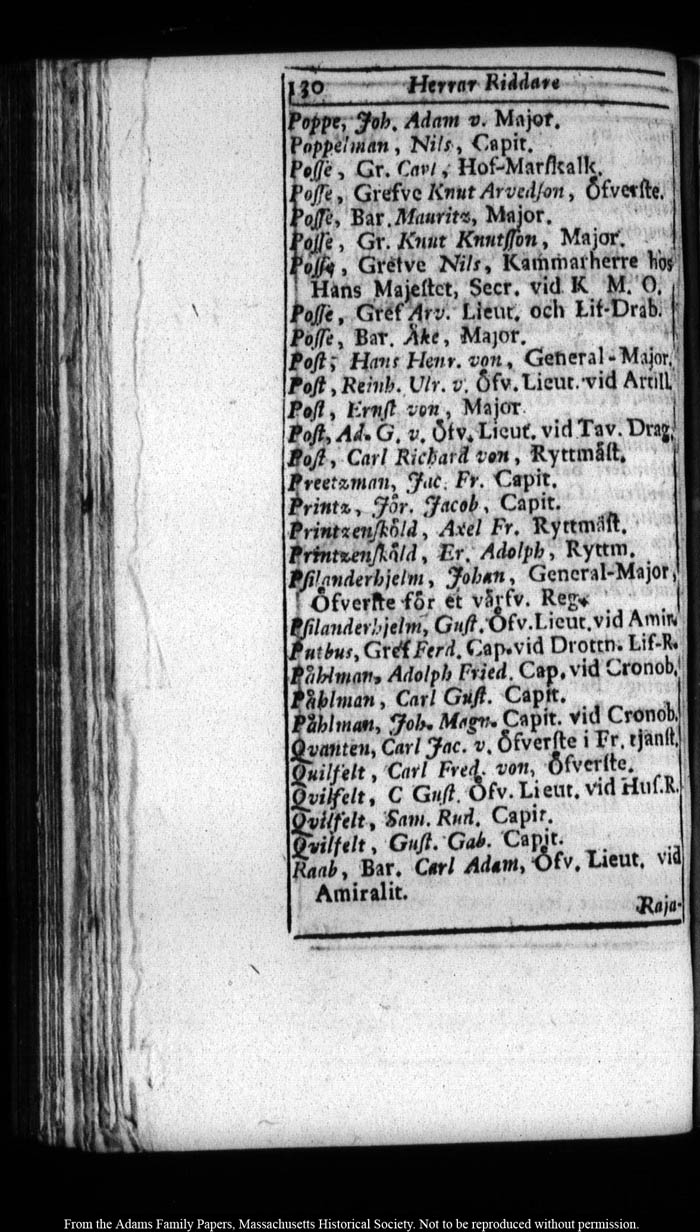 130 Herrar Riddare
Poppe, Joh. Adam v. Major.
Poppelman, Nils, Capit.
Posse, Gr. Carl, Hof-Marskalk.
Posse, Grefve Knut Arvedson, Öfverste.
Posse, Bar. Mauritz, Major.
Posse, Gr. Knut Knutsson, Major.
Posse, Grefve Nils, Kammarherre hos
Hans Majestet, Secr. vid K M. O.
Posse, Gref Arv. Lieut. och Lif-Drab.
Posse, Bar. Åke, Major.
Post, Hans Henr. von, General-Major.
Post, Reinh. Ulr. v. Öfv. Lieut. vid Artill.
Post, Ernst von, Major.
Post, Ad. G. v. Öfv. Lieut. vid Tav. Drag.
Post, Carl Richard von, Ryttmåst.
Preetzman, Jac. Fr. Capit.
Printz, Jör. Jacob, Capit.
Printzensköld, Axel Fr. Ryttmäst.
Printzensköld, Er. Adolph, Ryttm.
Psilanderhjelm, Johan, General-Major,
Öfverste för et vårfv. Reg.
Psilanderhjelm, Gust. Öfv. Lieut. vid Amir.
Putbus, Gref Ferd. Cap. vid Drottn. Lif-R.
Påhlman, Adolph Fried. Cap. vid Cronob.
Påhlman, Carl Gust. Capit.
Påhlman, Joh. Magn. Capit. vid Cronob.
Qvanten, Carl Jac. v. Öfverste i Fr. tjänst.
Quilfelt, Carl Fred. von, Öfverste.
Qvilfelt, C Gust. Öfv. Lieut. vid Hus. R.
Qvilfelt, Sam. Rud. Capit.
Qvilfelt, Gust. Gab. Capit.
Raab, Bar. Carl Adam, Öfv. Lieut. vid
Amiralit.
Raja-
From the Adams Family Papers, Massachusetts Historical Society. Not to be reproduced without permission.